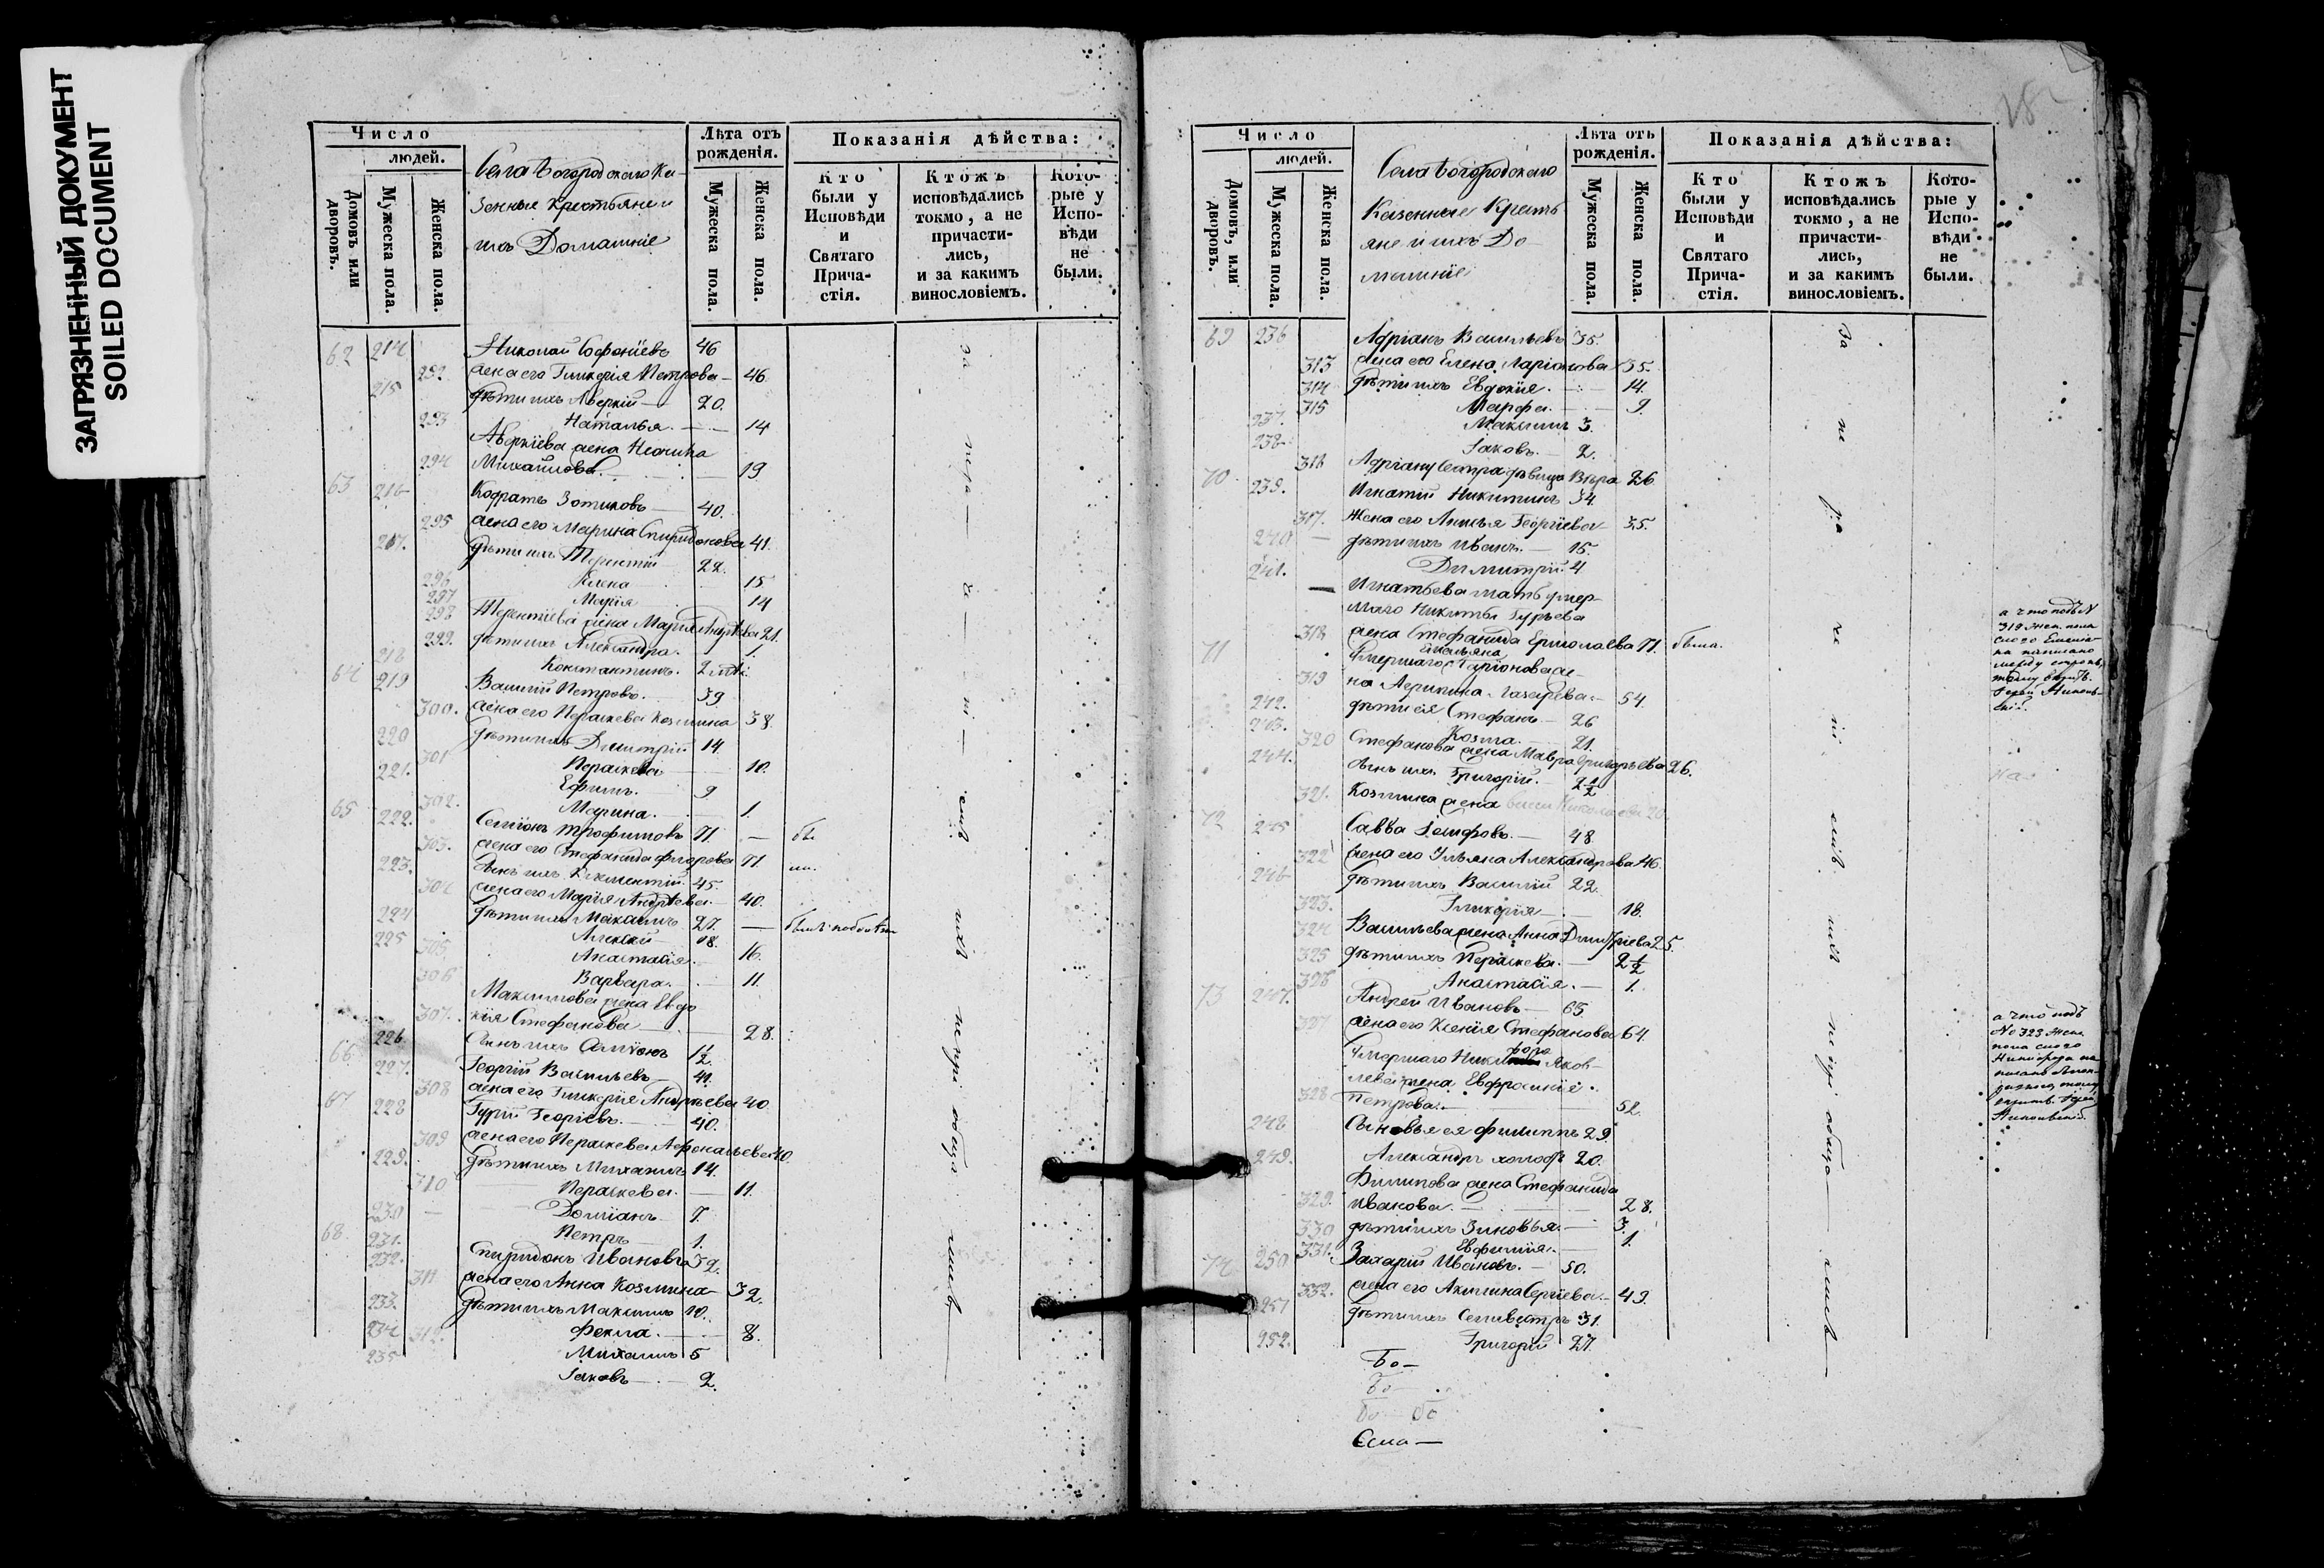 ЗАГРЯЗНЕННЫЙ ДОКУМЕНТ
SOILED DOCUMENT
Число
людей.
Домовъ или дворовъ.
Мужеска пола.
Женска пола.
Села Богородскаго Ка-
зенные Крестьяне и
ихъ Домашніе
Лѣта отъ рожденія.
Мужеска пола.
Женска пола.
Показанія дѣйства:
Кто были у Исповѣди и Святаго Прича-стія.
Ктожъ исповѣдались токмо, а не причасти-лись, и за какимъ винословіемъ.
Кото-рые у Испо-вѣди не были.
62 214 Николай Софоніевъ 46
292. жена его Гликерія Петрова 46
215 дѣти ихъ Аверкій 20.
293 Наталья 14
Аверкіева жена
294 Михайлова 19
63 216 Кодратъ Зотиковъ 40.
295 жена его Марина Спиридонова 41.
217. дѣти ихъ Терентій 22.
296 Елена 15
297 Марія 14
298 Терентіева жена Марія Андреева 21.
299. дѣти ихъ Александра. 1.
218 Константинъ. 2
64 219 Василій Петровъ. 39
300. жена его Параскева Козмина 38.
220 дѣти ихъ Димитрій 14.
301 Параскева 10.
221. Ефимъ. 9
302. Марина. 1.
65 222. Семіонъ Трофимовъ 71. —
303. жена его Стефанида Фидорова 71.
223. сынъ ихъ Климентій 45.
304 жена его Марія Андреева 40.
224 дѣти ихъ Максимъ 27. —
225 Алексій 18.
305. Анастасія. 16.
306 Варвара. 11.
Максимова жена Евдо
307. кія Стефанова 28.
226. Сынъ ихъ Симіонъ 1/2
66 227. Георгій Васильевъ 41.
308 жена его Гликерія Андреева 40
67 228 Гурій Георгіевъ. 40.
309 жена его Параскева Афанасьева 40.
229. дѣти ихъ Михаилъ 14.
310 Параскева. 11.
230 Доміанъ 7.
231. Петръ 1.
68. 232. Спиридонъ Ивановъ 32.
311 жена его Анна Козмина 32.
233. дѣти ихъ Максимъ 10.
312. Фекла. 8.
234 Михаилъ 5
235 Іаковъ 2.
Число
людей.
Домовъ, или дворовъ.
Мужеска пола.
Женска пола.
Села Богородскаго
Казенные Кресть
яне и ихъ До-
машніе
Лѣта отъ рожденія.
Мужеска пола.
Женска пола.
Показанія дѣйства:
Кто были у Исповѣди и Святаго Прича-стія.
Ктожъ исповѣдались токмо, а не причасти-лись, и за какимъ винословіемъ.
Кото-рые у Испо-вѣди не были.
69 236 Адріанъ Васильевъ 35.
313 жена его Елена Ларіонова 35.
314 дѣти ихъ Евдокія. 14.
315 Марфа. 9.
237. Максимъ 3.
238 Іаковъ. 2.
316 Адріану сестра дѣвица Вѣра 26
70 239. Игнатій Никитинъ 34.
317. Жена его Анисья Георгіева 35.
240 дѣти ихъ Иванъ. 15.
241. Димитрій 4
Игнатьева мать умер-
шаго Никиты Гурьева
318 жена Стефанида Ермолаева 71. была.
71 Умершаго Емельяна Ларіонова же-
319 на Акулина Лазарева 54.
242. дѣти ея Стефанъ 26
243. Козма. 21.
320 Стефанова жена Мавра Григорьева 26.
244. сынъ ихъ Григорій. 2 1/2
321. Козмина жена
72 245 Савва Іосифовъ. 48
322 жена его Ульяна Александрова 46.
246 дѣти ихъ Василій 22.
323. Гликерія 18.
324 Васильева жена Анна Димитріева 25.
325 дѣти ихъ Параскева. 2 1/2
326 Анастасія. 1.
73 247. Андрей Ивановъ 65
327 жена его Ксенія Стефанова 64.
Умершаго Никифора Яков-
лева жена Евфросинія
328 Петрова. 52.
248 Сыновья ея Филиппъ 29
249. Александръ холостъ 20.
Филипова жена Стефанида
329. Иванова. 28.
330 дѣти ихъ Зиновья. 3.
331. Евфимія. 1.
74 250 Захарій Ивановъ. 50.
332. жена его Акилина Сергіева 49.
251 дѣти ихъ Селивестръ 31.
252. Григорій 27.
Бо-
Бо-
бо- бо
Сила —